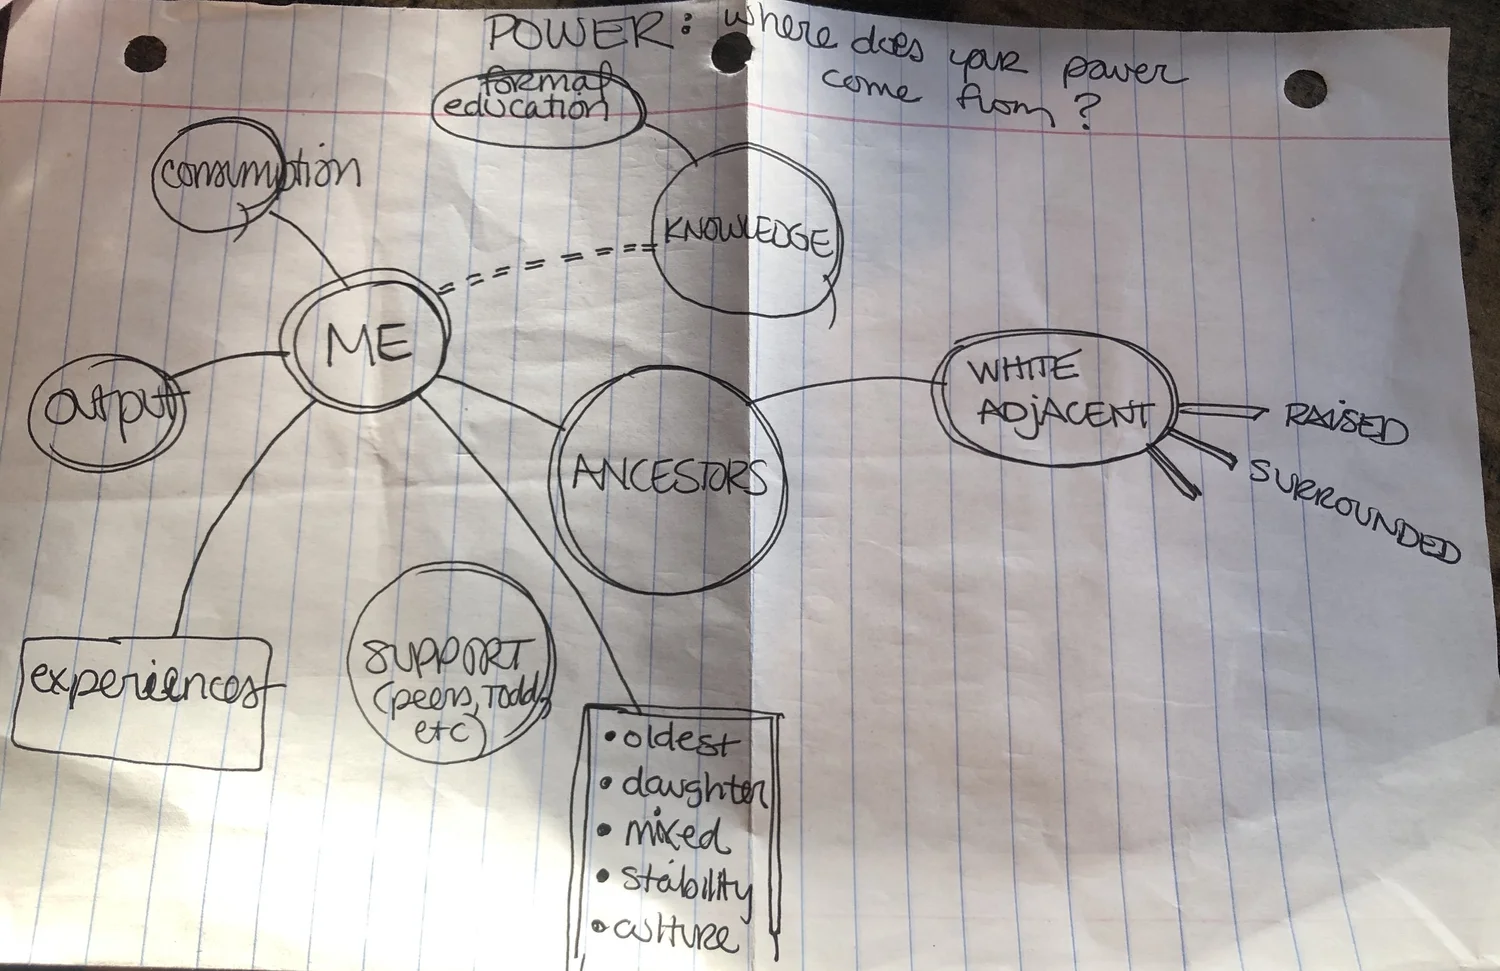 POWER: where does your power
come from?
formal
education
consumption
KNOWLEDGE
ME
output
WHITE
ADJACENT
RAISED
SURROUNDED
ANCESTORS
experiences
SUPPORT
(peers, Todd,
etc)
• oldest
• daughter
• mixed
• stability
• culture